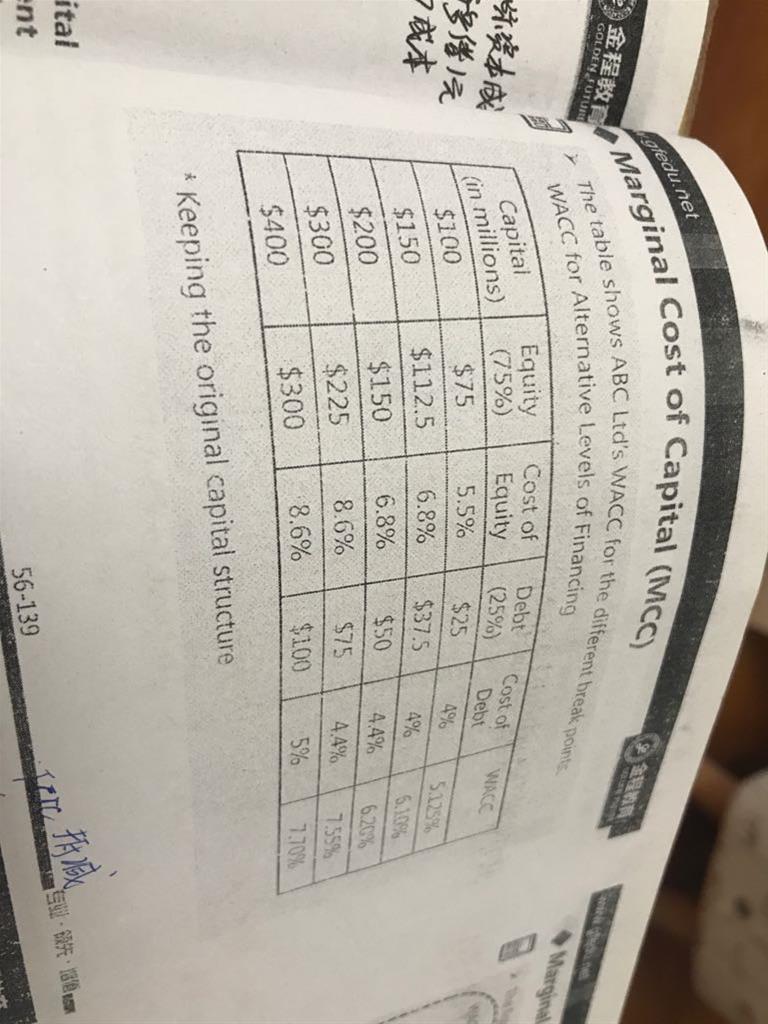 金程教育
GOLDEN FUTURE
成本
ital
ent
gfedu.net
金程教育
◆ Marginal Cost of Capital (MCC)
➢ The table shows ABC Ltd's WACC for the different break points.
WACC for Alternative Levels of Financing
Capital (in millions) Equity (75%) Cost of Equity Debt (25%) Cost of Debt WACC
$100 $75 5.5% $25 4% 5.125%
$150 $112.5 6.8% $37.5 4% 6.10%
$200 $150 6.8% $50 4.4% 6.20%
$300 $225 8.6% $75 4.4% 7.55%
$400 $300 8.6% $100 5% 7.70%
* Keeping the original capital structure
56-139
抵减
◆ Marginal